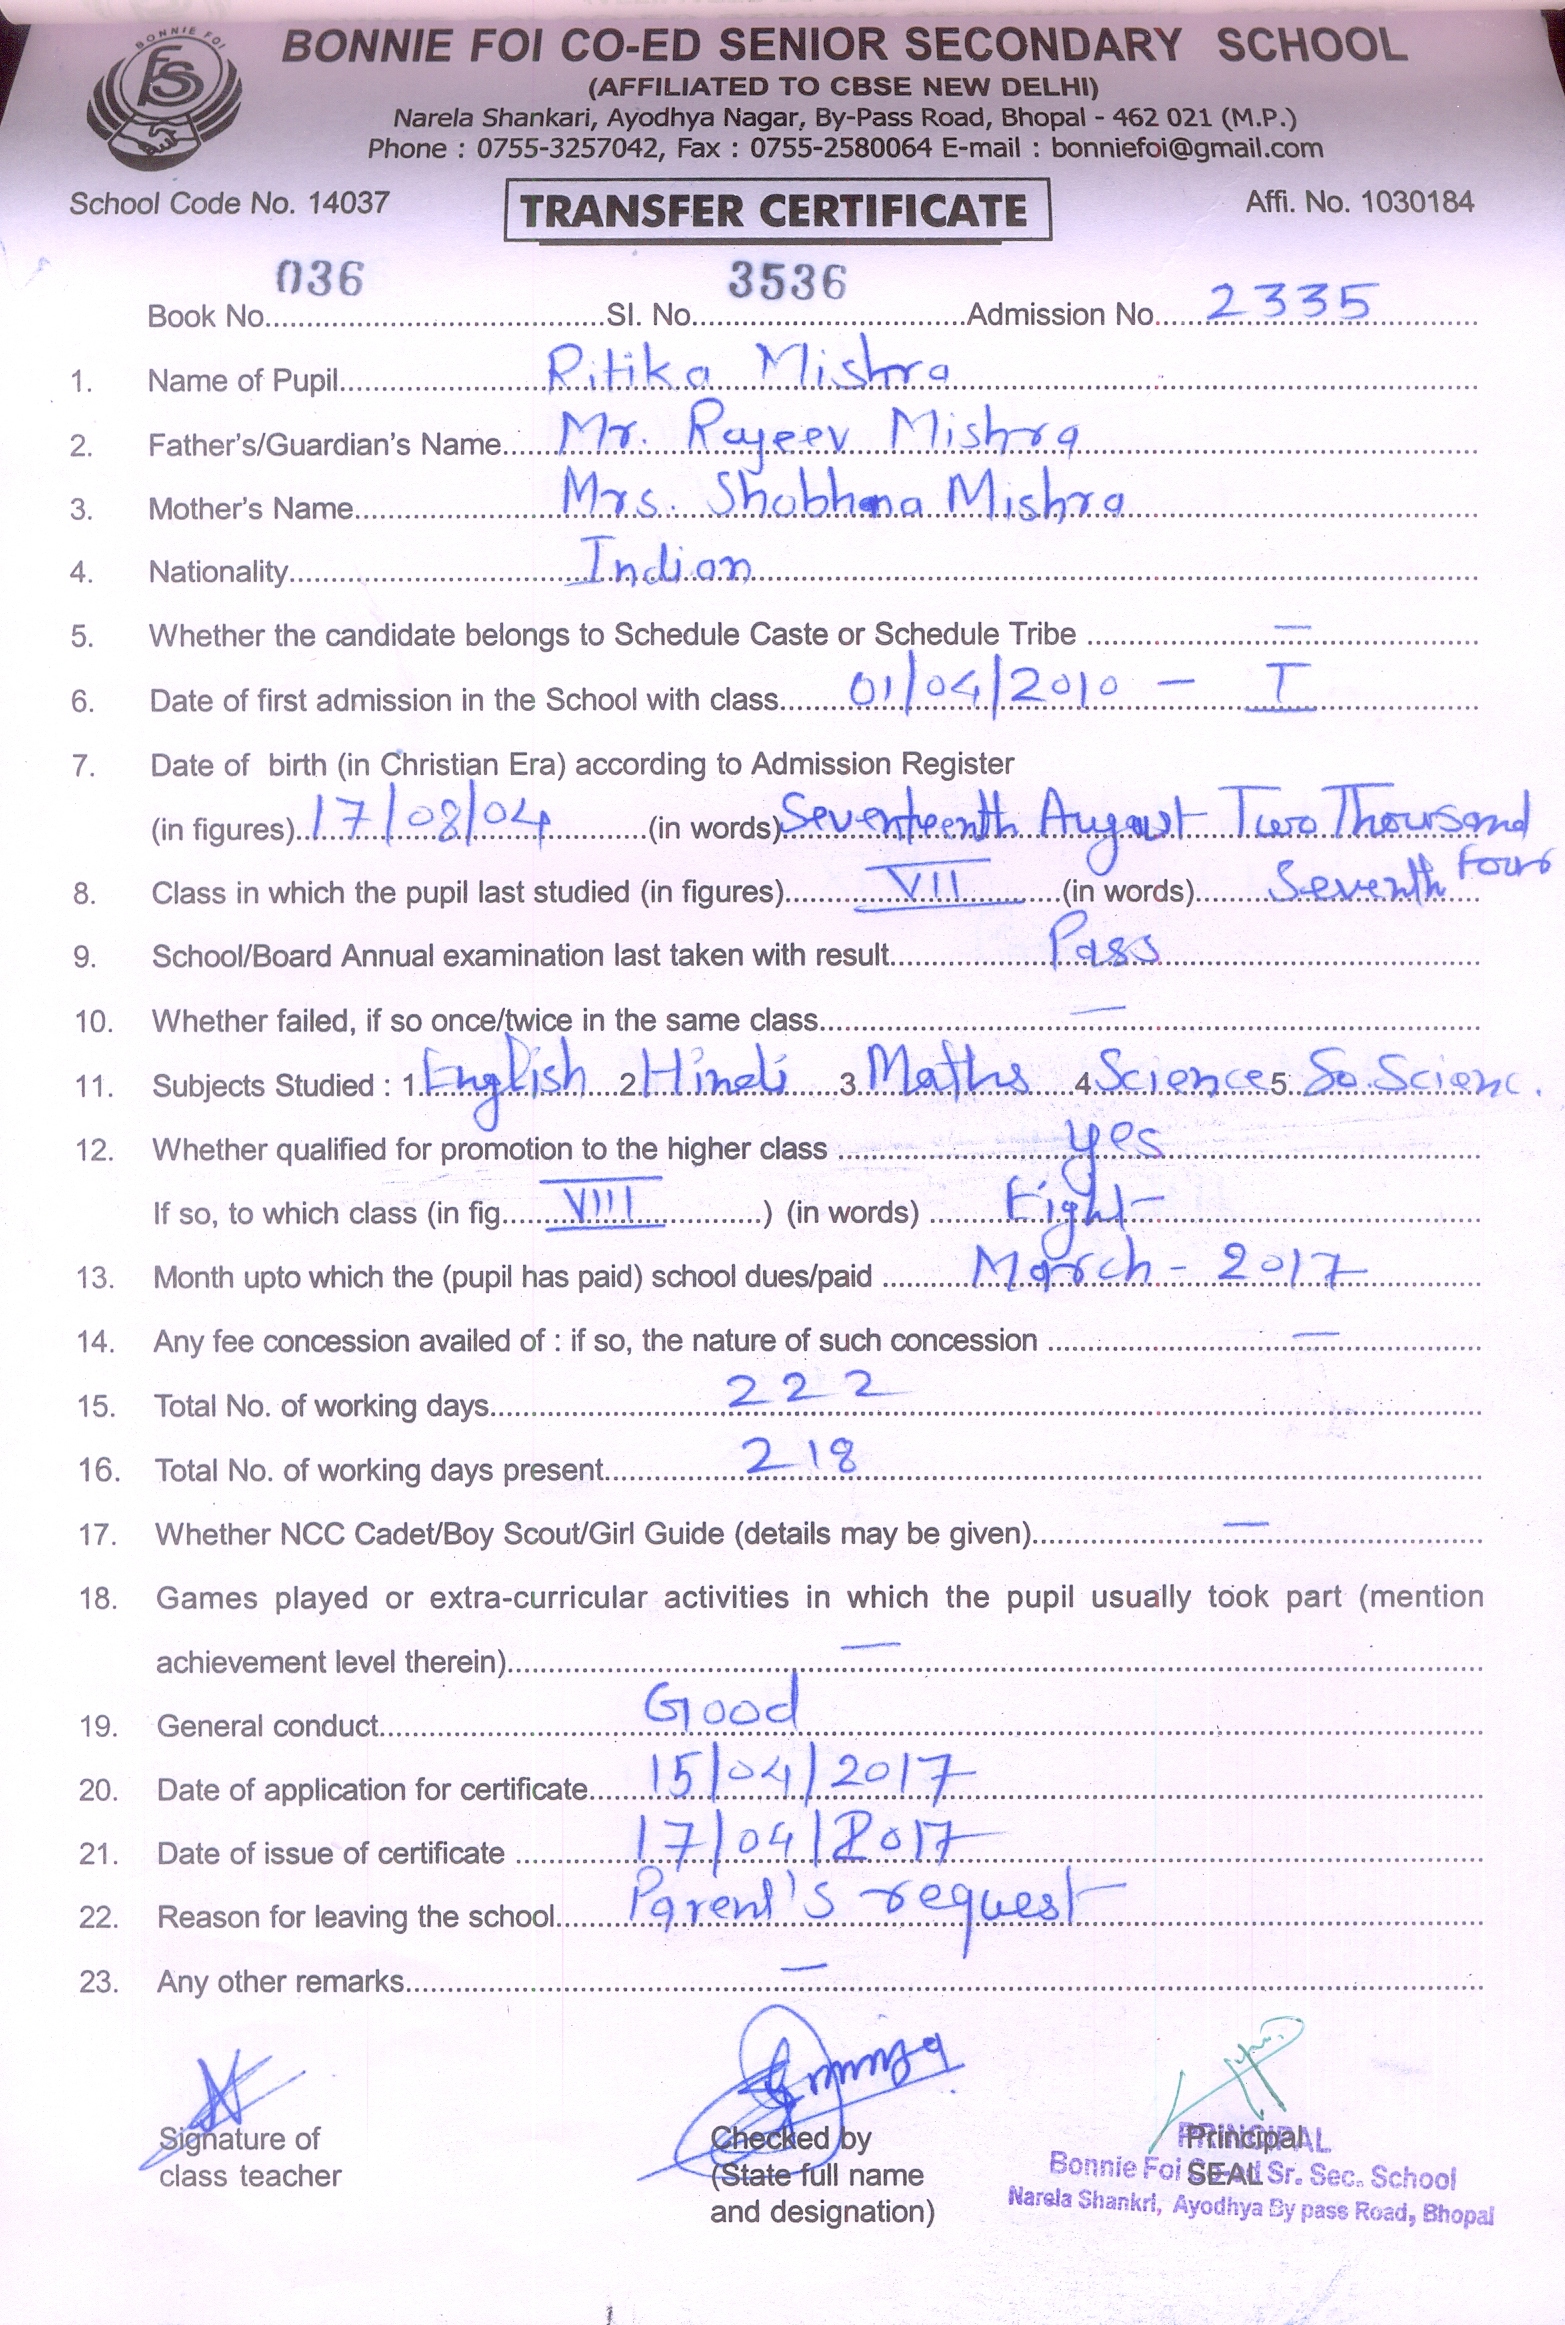 BONNIE FOI
FS
BONNIE FOI CO-ED SENIOR SECONDARY SCHOOL
(AFFILIATED TO CBSE NEW DELHI)
Narela Shankari, Ayodhya Nagar, By-Pass Road, Bhopal - 462 021 (M.P.)
Phone : 0755-3257042, Fax : 0755-2580064 E-mail : bonniefoi@gmail.com
School Code No. 14037 TRANSFER CERTIFICATE Affi. No. 1030184
Book No. 036 SI. No. 3536 Admission No. 2335
1. Name of Pupil Ritika Mishra
2. Father's/Guardian's Name Mr. Rajeev Mishra
3. Mother's Name Mrs. Shobhana Mishra
4. Nationality Indian
5. Whether the candidate belongs to Schedule Caste or Schedule Tribe —
6. Date of first admission in the School with class 01/04/2010 - I
7. Date of birth (in Christian Era) according to Admission Register
(in figures) 17/08/04 (in words) Seventeenth August Two Thousand Four
8. Class in which the pupil last studied (in figures) VII (in words) Seventh
9. School/Board Annual examination last taken with result Pass
10. Whether failed, if so once/twice in the same class —
11. Subjects Studied : 1. English 2. Hindi 3. Maths 4. Science 5. So. Scienc.
12. Whether qualified for promotion to the higher class yes
If so, to which class (in fig. VIII ) (in words) Eight
13. Month upto which the (pupil has paid) school dues/paid March - 2017
14. Any fee concession availed of : if so, the nature of such concession —
15. Total No. of working days 222
16. Total No. of working days present 218
17. Whether NCC Cadet/Boy Scout/Girl Guide (details may be given) —
18. Games played or extra-curricular activities in which the pupil usually took part (mention
achievement level therein) —
19. General conduct Good
20. Date of application for certificate 15/04/2017
21. Date of issue of certificate 17/04/2017
22. Reason for leaving the school Parent's request
23. Any other remarks —
Signature of
class teacher
Checked by
(State full name
and designation)
Principal
SEAL
PRINCIPAL
Bonnie Foi Co-ed Sr. Sec. School
Narela Shankri, Ayodhya By pass Road, Bhopal